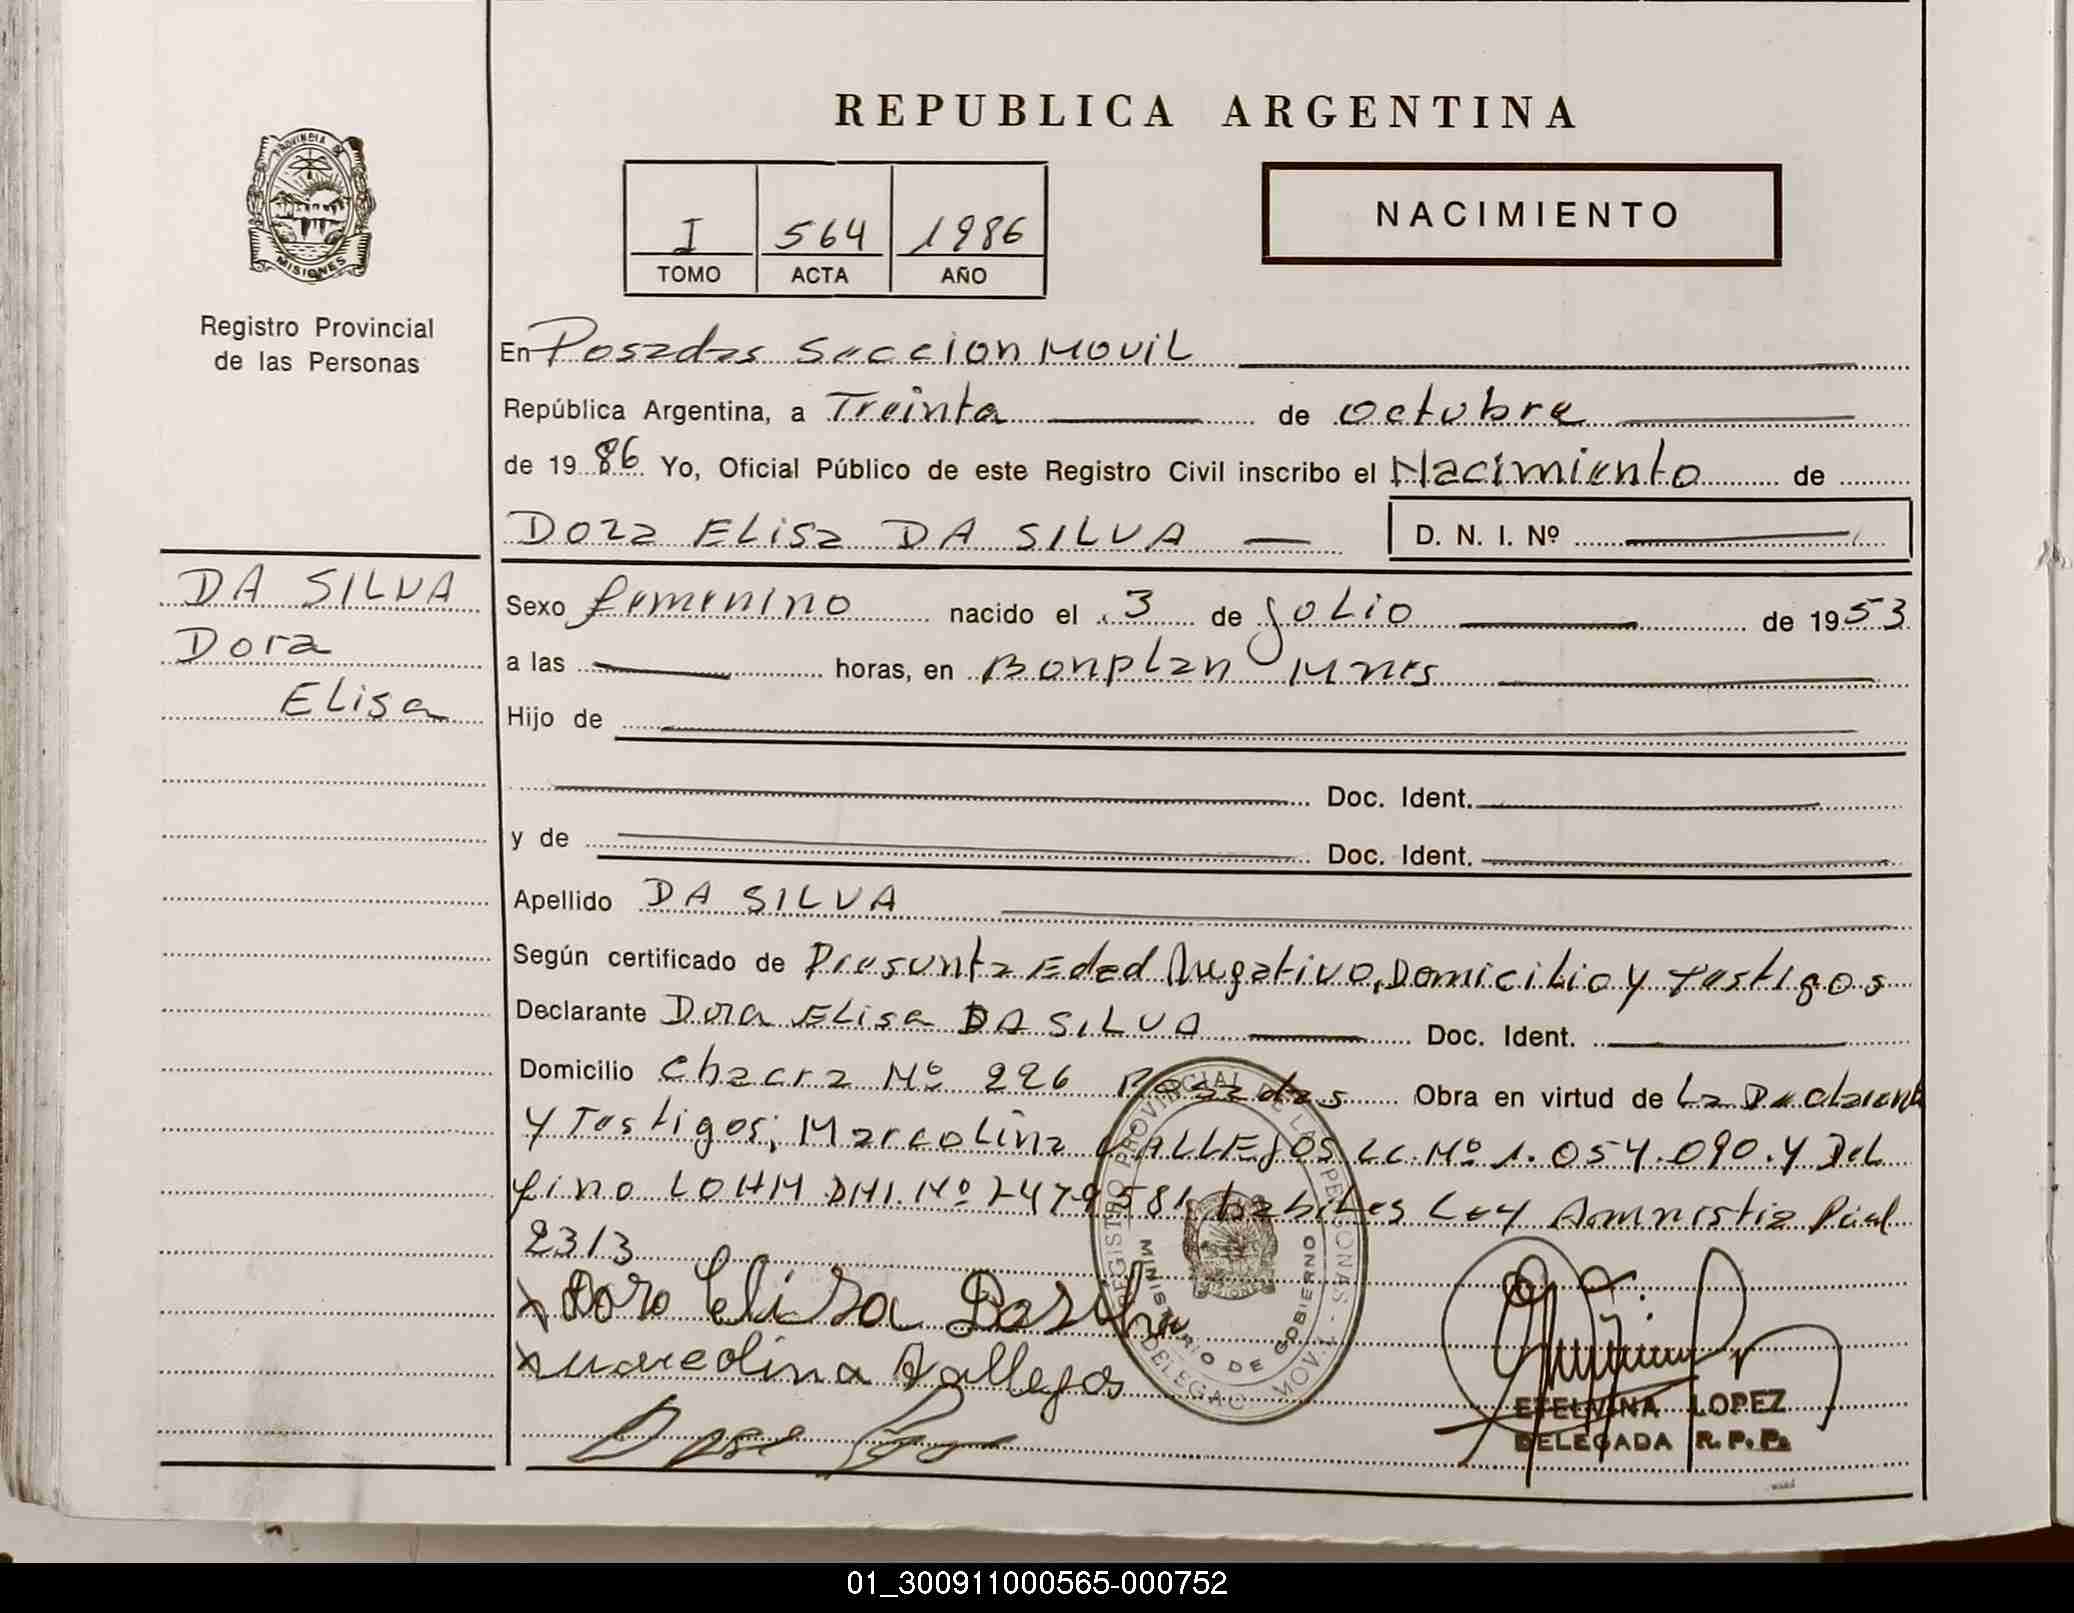 REPUBLICA ARGENTINA
PROVINCIA DE
MISIONES
Registro Provincial
de las Personas
I 564 1986
TOMO ACTA AÑO
NACIMIENTO
En Posadas Seccion Movil
República Argentina, a Treinta de octubre
de 1986 Yo, Oficial Público de este Registro Civil inscribo el Nacimiento de
Dora Elisa DA SILVA D. N. I. Nº
DA SILVA
Dora
Elisa
Sexo femenino nacido el 3 de Julio de 1953
a las horas, en Bonplan Mnes
Hijo de
Doc. Ident.
y de Doc. Ident.
Apellido DA SILVA
Según certificado de Presunta Edad Negativo, Domicilio y Testigos
Declarante Dora Elisa DA SILVA Doc. Ident.
Domicilio Chacra Nº 226 Posadas Obra en virtud de La Declarante
y Testigos; Marcolina VALLEJOS LC. Nº 1.054.090. y Del
fino LOHM DNI. Nº 7479581 habiles Ley Amnistia Pcial
2313
REGISTRO PROVINCIAL DE LAS PERSONAS - DELEGAC. MOVIL
MINISTERIO DE GOBIERNO
x Dora Elisa Dasilva
x Marcolina Vallejos
ETELVINA LOPEZ
DELEGADA R.P.P.
01_300911000565-000752